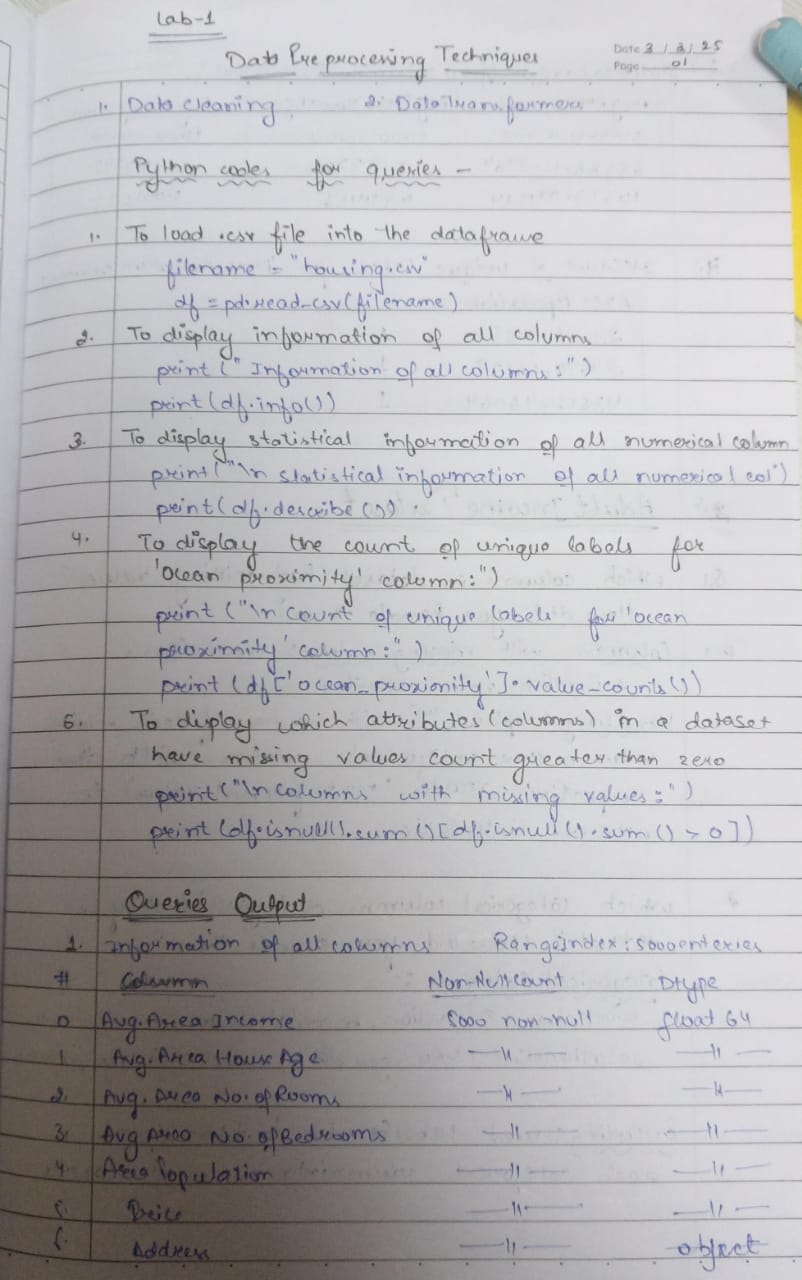 Lab-1
Data Preprocessing Techniques
Date 3/3/25
Page 01
1. Data cleaning 2. Data Transformers
Python codes for queries -
1. To load .csv file into the dataframe
filename = "housing.csv"
df = pd.read_csv(filename)
2. To display information of all columns
print (" Information of all columns:")
print (df.info())
3. To display statistical information of all numerical column
print ("\n statistical information of all numerical col")
print (df.describe())
4. To display the count of unique labels for
'Ocean proximity' column:")
print ("\n Count of unique labels for 'ocean
proximity' column:")
print (df['ocean_proxionity'].value_counts())
5. To display which attributes (columns) in a dataset
have missing values count greater than zero
print ("\n columns with missing values:")
print (df.isnull().sum()[df.isnull().sum() > 0])
Queries Output
1. Information of all columns RangeIndex: 5000 enteries
# Column Non-Null count Dtype
0 Avg. Area Income 5000 non-null float 64
1 Avg. Area House Age —11— —11—
2. Avg. Area No. of Rooms —11— —11—
3. Avg Area No. of Bedrooms —11— —11—
4 Area Population —11— —11—
5. Price —11— —11—
6. Address —11— object